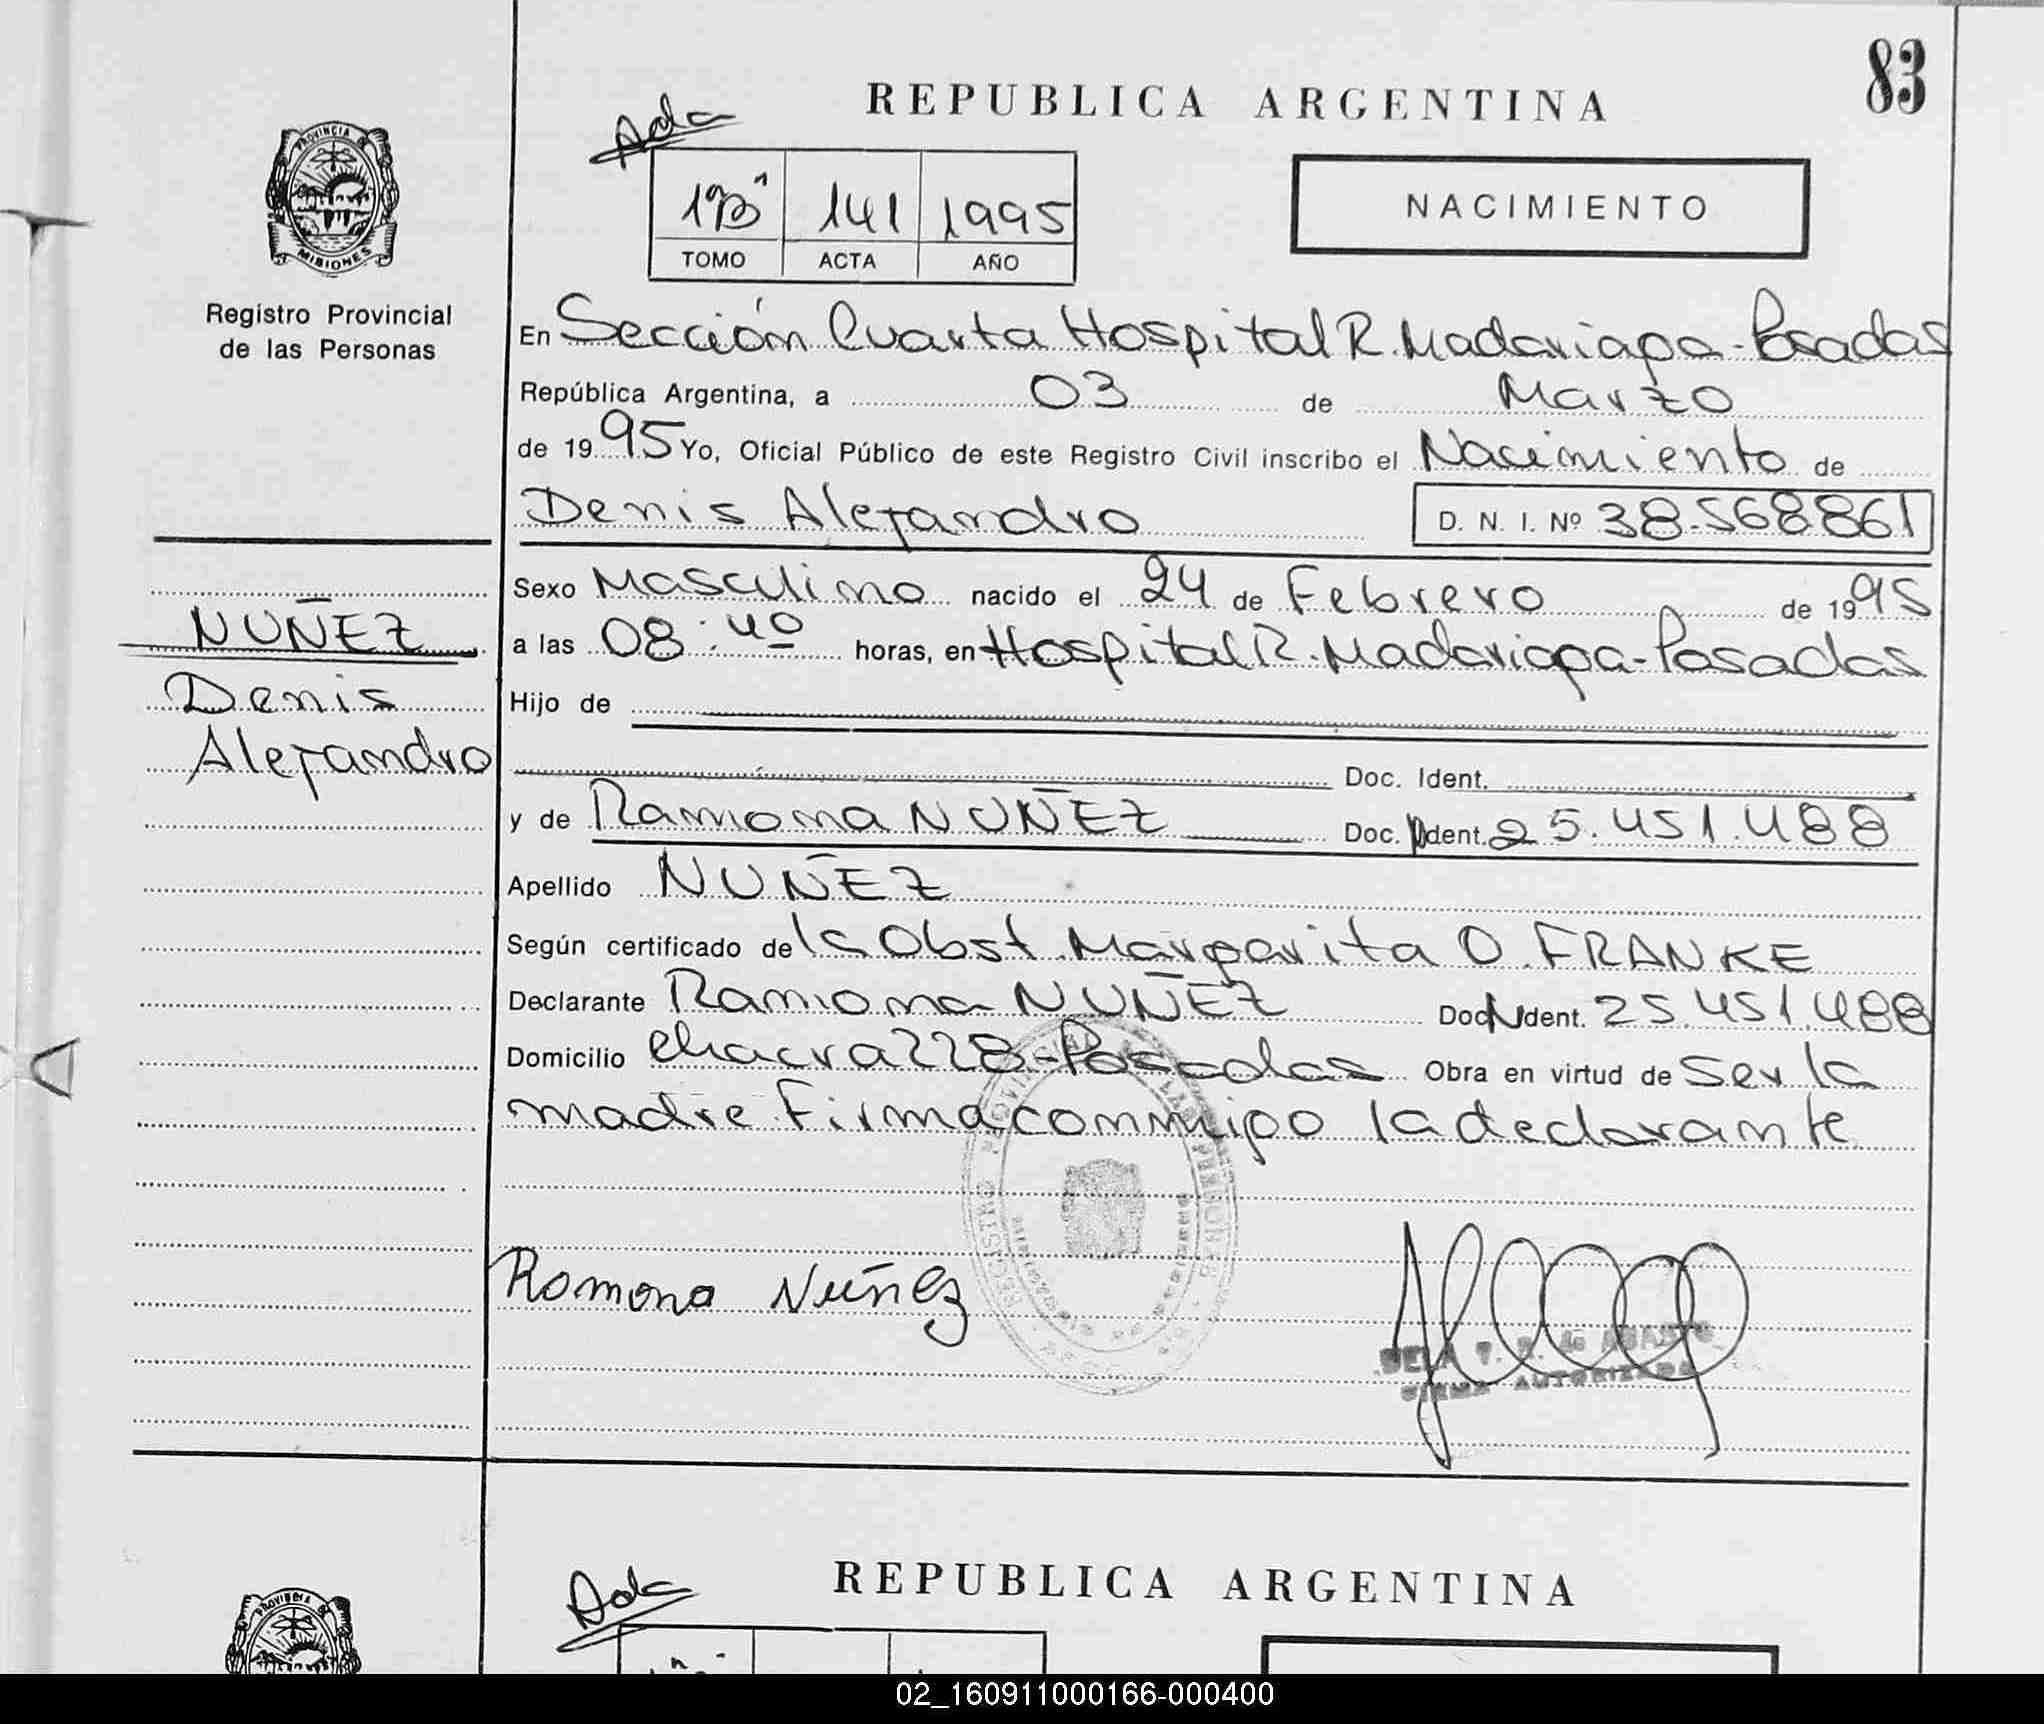 83
REPUBLICA ARGENTINA
Ada
PROVINCIA
MISIONES
Registro Provincial
de las Personas
1941 1995
TOMO ACTA AÑO
NACIMIENTO
En Sección Cuarta Hospital R. Madariaga-Posadas
República Argentina, a 03 de Marzo
de 1995 Yo, Oficial Público de este Registro Civil inscribo el Nacimiento de
Denis Alejandro D. N. I. Nº 38.568861
Sexo Masculino nacido el 24 de Febrero de 1995
NUÑEZ
a las 08:40 horas, en Hospital R. Madariaga-Posadas
Denis
Hijo de
Alejandro
Doc. Ident.
y de Ramona NUÑEZ Doc. Ident. 25.451.488
Apellido NUÑEZ
Según certificado de la Obst. Margarita O. FRANKE
Declarante Ramona NUÑEZ Doc. Ident. 25.451.488
Domicilio chacra 228-Posadas Obra en virtud de Ser la
madre. Firma conmigo la declarante
Ramona Nuñez
FIRMA AUTORIZADA
REPUBLICA ARGENTINA
Ada
PROVINCIA
02_160911000166-000400